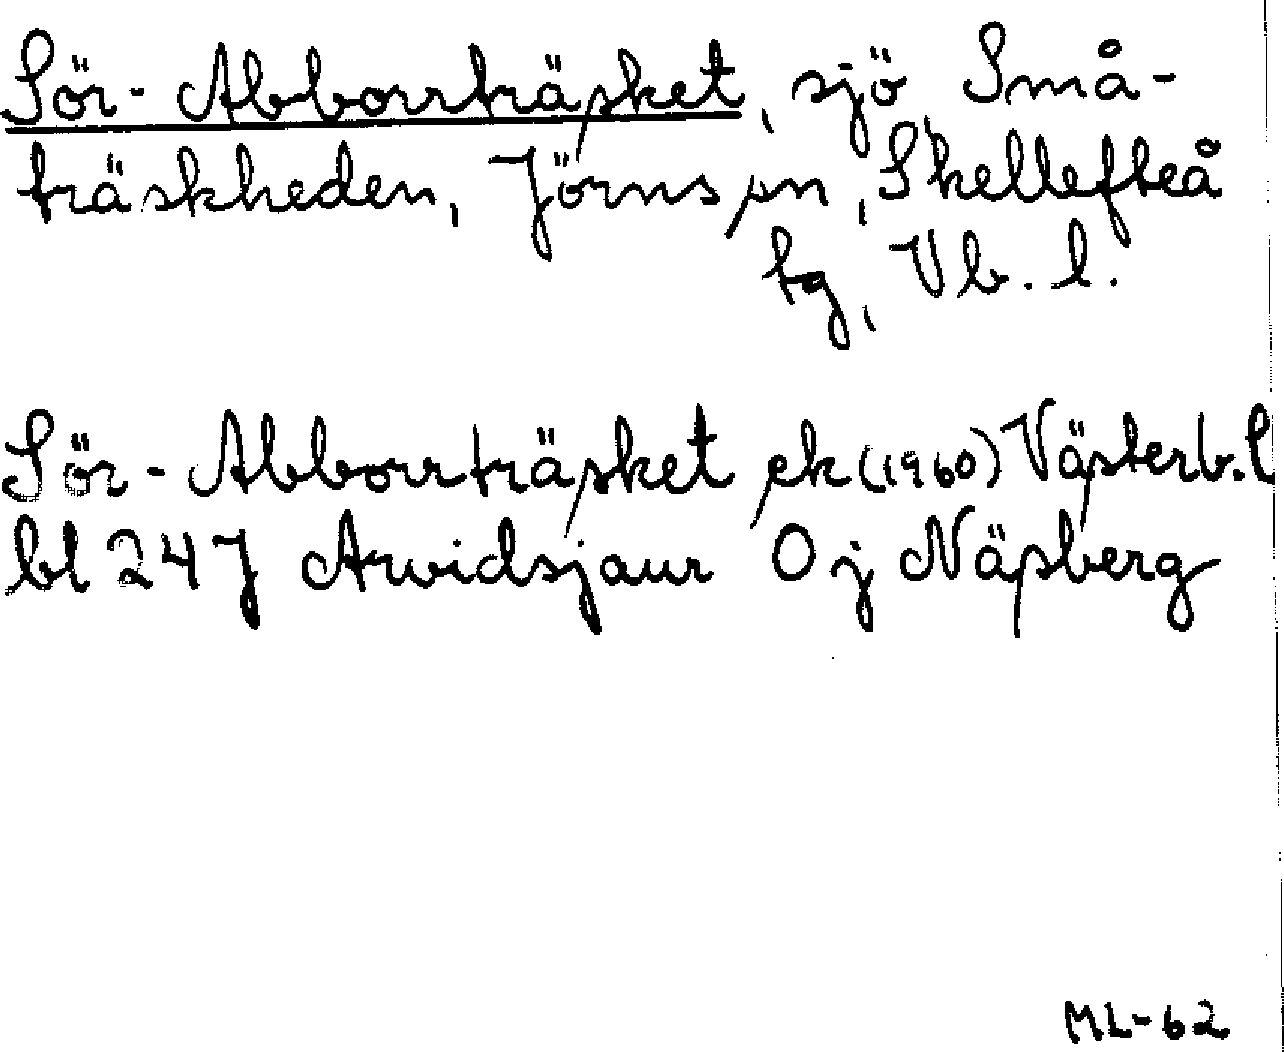 Sör-Abborrträsket, sjö Små-
träskheden, Jörns sn, Skellefteå
tg, Vb. l.
Sör-Abborrträsket ek (1960) Västerb. l
bl 24J Arvidsjaur 0j Näsberg
ML-62